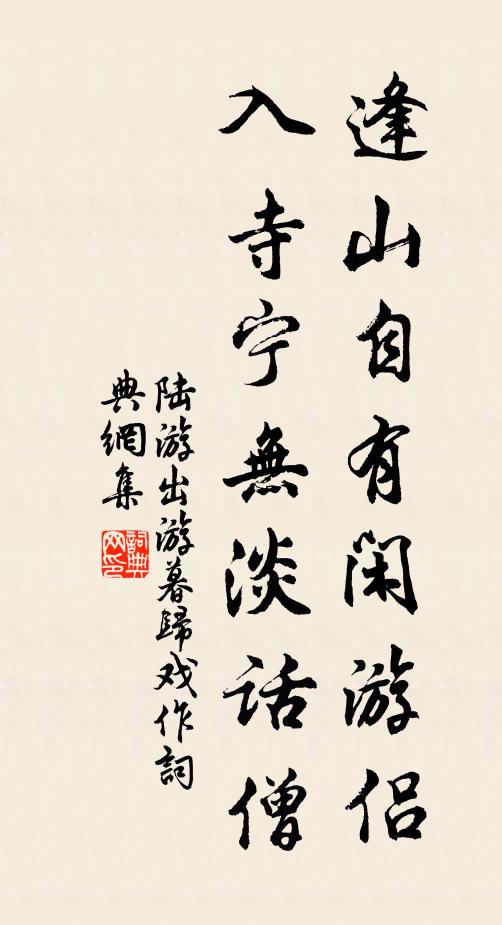 逢山自有闲游侣
入寺宁無淡话僧
陆游出游暮歸戏作詞
典網集
詞典
网印